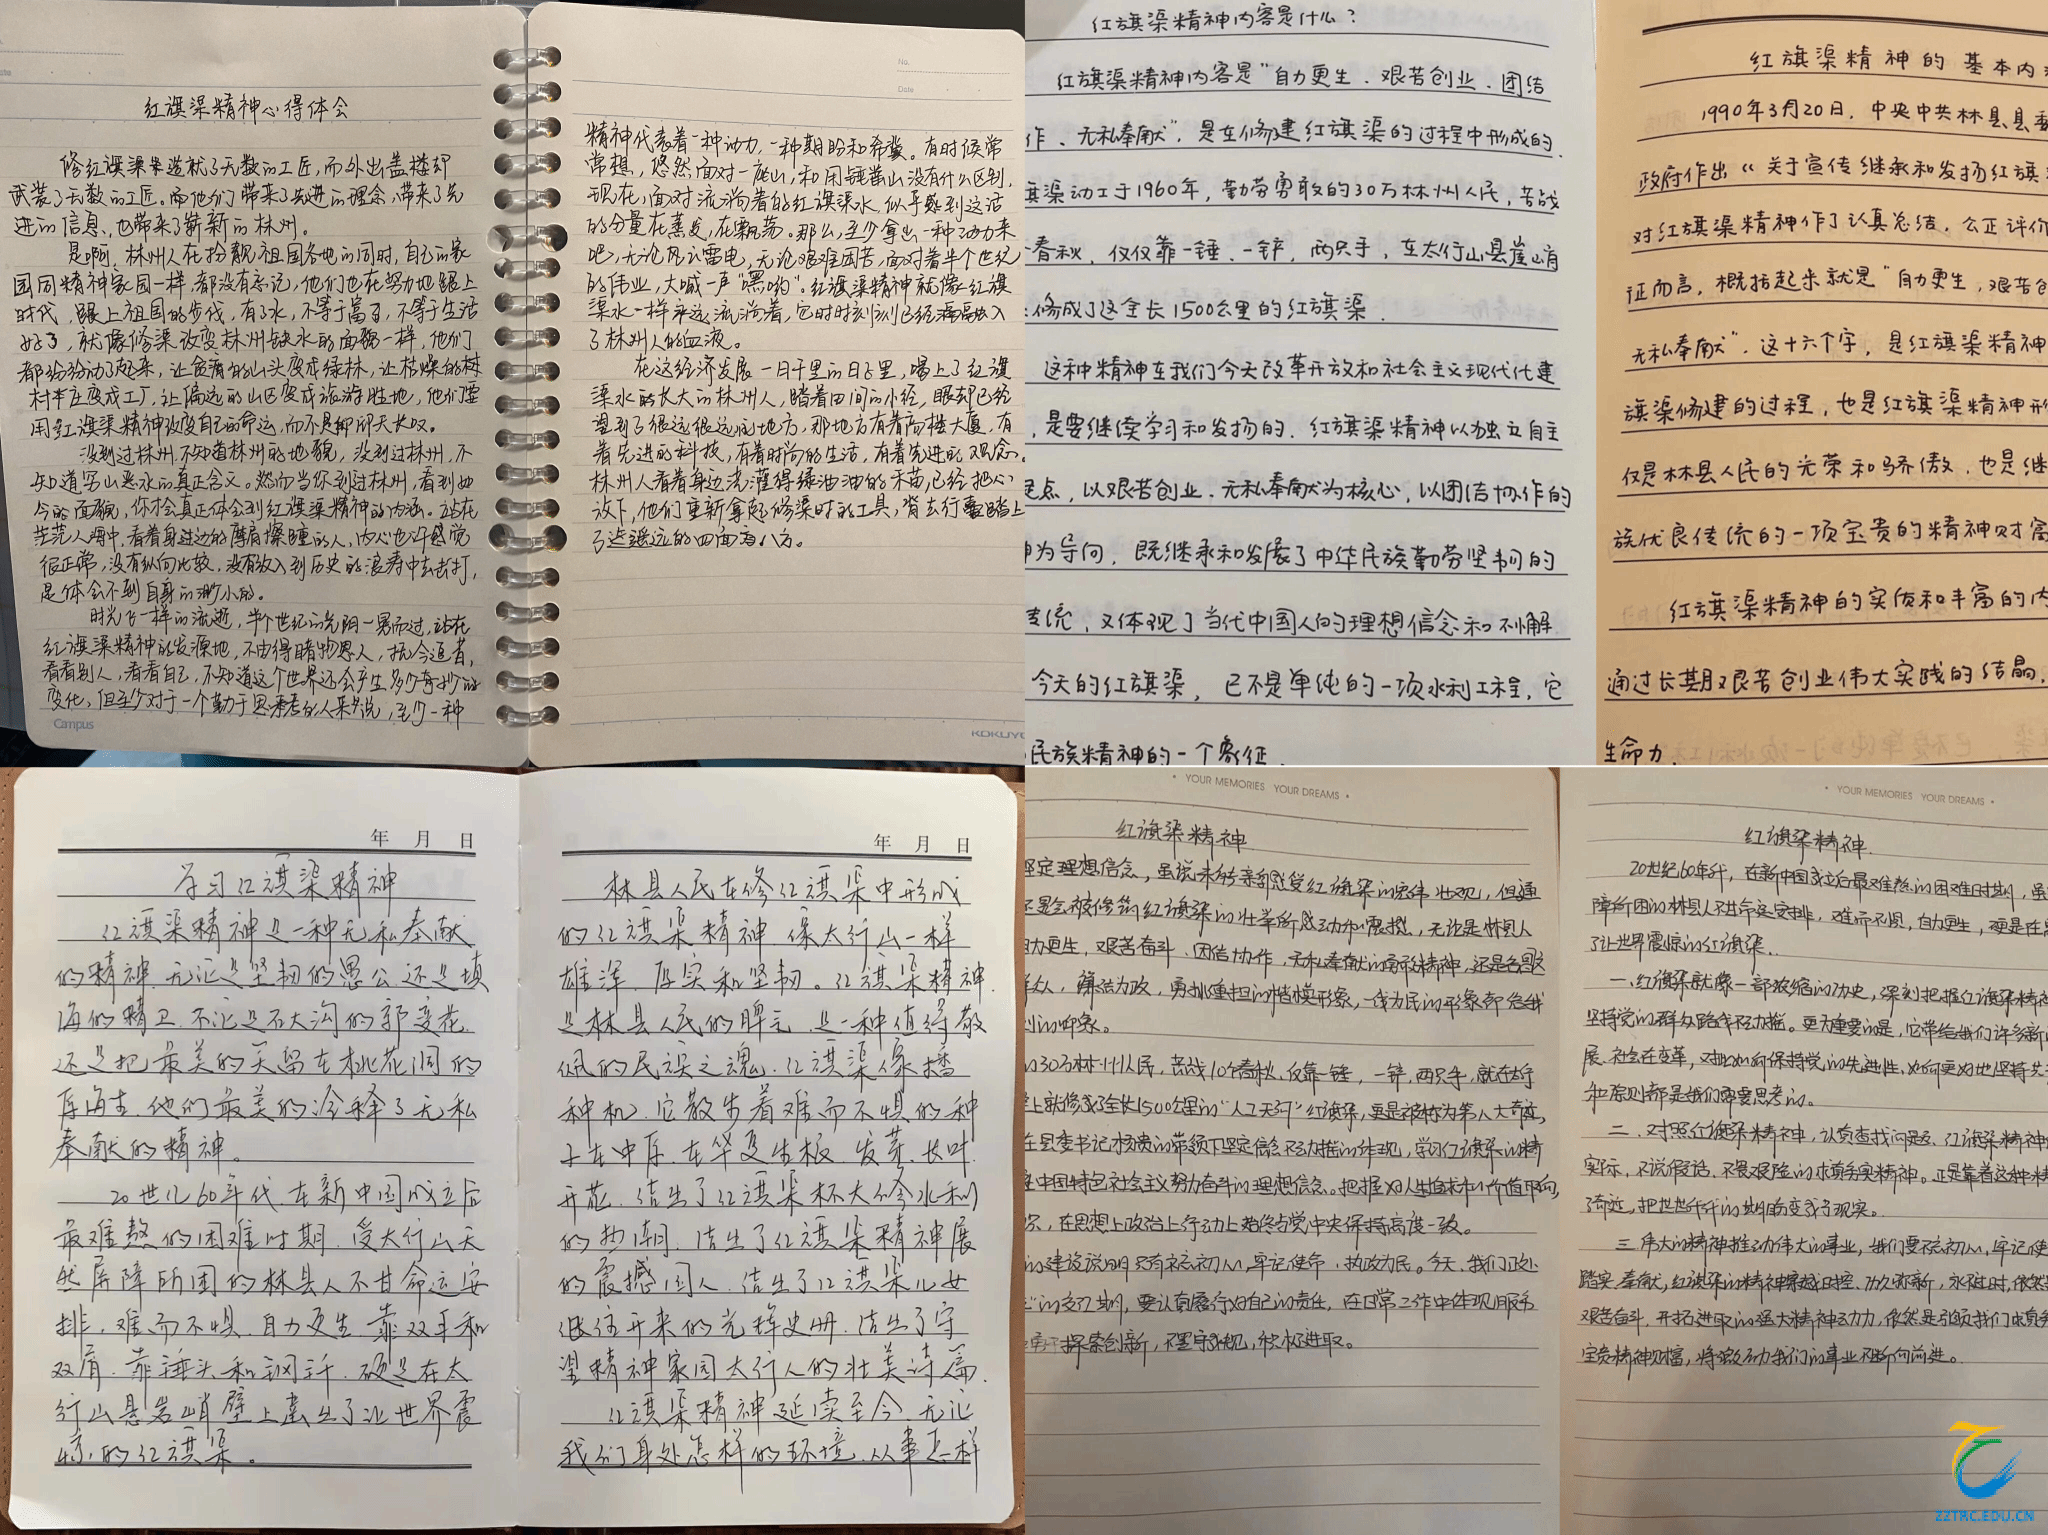 红旗渠精神心得体会
修红旗渠造就了无数的工匠，而外出盖楼却
武装了无数的工匠。而他们带来了先进的理念，带来了先
进的信息，也带来了崭新的林州。
是啊，林州人在扮靓祖国各地的同时，自己的家
园同精神家园一样，都没有忘记，他们也在努力地跟上
时代，跟上祖国的步伐，有了水，不等于富了，不等于生活
好了，就像修渠改变林州缺水的面貌一样，他们
都纷纷动了起来，让荒凉的山头变成绿林，让枯燥的
村庄变成工厂，让偏远的山区变成旅游胜地，他们要
用红旗渠精神改变自己的命运，而不是仰卧天长叹。
没到过林州，不知道林州的地貌，没到过林州，不
知道穷山恶水的真正含义。然而当你到过林州，看到如
今的面貌，你才会真正体会到红旗渠精神的内涵。站在
茫茫人海中，看着身边过的摩肩擦踵的人，内心也许感觉
很正常，没有纵向比较，没有放入到历史的浪涛中去击打，
是体会不到自身的渺小的。
时光飞一样的流逝，半个世纪的光阴一晃而过，站在
红旗渠精神的发源地，不由得睹物思人，抚今追昔，
看看别人，看看自己，不知道这个世界还会产生多少奇妙的
变化，但至少对于一个勤于思考的人来说，至少一种
Campus
No.
Date
精神代表着一种动力，一种期盼和希冀。有时候常
常想，悠然面对一座山，和用锤凿山没有什么区别，
现在，面对流淌着的红旗渠水，似乎感到这话
的分量在蒸发，在飘荡。那么，至少拿出一种动力来
吧，无论风云雷电，无论艰难困苦，面对着半个世纪
的伟业，大喊一声"嘿哟"。红旗渠精神就像红旗
渠水一样永远流淌着，它时时刻刻已经融入
了林州人的血液。
在这经济发展一日千里的日子里，喝上了红旗
渠水的长大的林州人，踏着田间的小径，眼却已经
望到了很远很远的地方，那地方有着高楼大厦，有
着先进的科技，有着时尚的生活，有着先进的观念。
林州人看着身边浇灌得绿油油的禾苗，已经把心
放下，他们重新拿起修渠时的工具，背去行囊踏上
了遥远的四面八方。
KOKUYO
红旗渠精神内容是什么？
红旗渠精神内容是"自力更生、艰苦创业、团结
作、无私奉献"，是在修建红旗渠的过程中形成的.
渠动工于1960年，勤劳勇敢的30万林州人民，苦战
春秋，仅仅靠一锤、一铲，两只手，在太行山悬崖山肖
修成了这全长1500公里的红旗渠.
这种精神在我们今天改革开放和社会主义现代化建
，是要继续学习和发扬的．红旗渠精神以独立自主
点，以艰苦创业、无私奉献为核心，以团结协作的
为导向．既继承和发展了中华民族勤劳坚韧的
传统，又体现了当代中国人的理想信念和不懈
今天的红旗渠，已不是单纯的一项水利工程，它
民族精神的一个象征.
红旗渠精神的基本内
1990年3月20日，中央中共林县县委
政府作出《关于宣传继承和发扬红旗
对红旗渠精神作了认真总结，公正评价
征而言，概括起来就是"自力更生，艰苦创
无私奉献"．这十六个字，是红旗渠精神
旗渠修建的过程，也是红旗渠精神形
仅是林县人民的光荣和骄傲，也是继
族优良传统的一项宝贵的精神财富
红旗渠精神的实质和丰富的内
通过长期艰苦创业伟大实践的结晶，
生命力.
年 月 日
学习红旗渠精神
红旗渠精神是一种无私奉献
的精神．无论是坚韧的愚公还是填
海的精卫，不论是石大沟的郭变花，
还是把最美的笑留在桃花洞的
李海生．他们最美的诠释了无私
奉献的精神。
20世纪60年代，在新中国成立后
最难熬的困难时期．受太行山天
然屏障所困的林县人不甘命运安
排，难而不惧，自力更生，靠双手和
双肩，靠锤头和钢钎，硬是在太
行山悬岩峭壁上凿出了让世界震
惊的红旗渠。
年 月 日
林县人民在修红旗渠中形成
的红旗渠精神．像太行山一样
雄浑、厚实和坚韧。红旗渠精神
是林县人民的脾气．是一种值得敬
佩的民族之魂．红旗渠像播
种机，它散步着难而不惧的种
子在中原、在华夏生根、发芽、长叶、
开花．结出了红旗渠林大修水利
的热潮．结出了红旗渠精神展
的震撼国人．结出了红旗渠儿女
继往开来的光辉史册．结出了守
望精神家园太行人的壮美诗篇．
红旗渠精神延续至今．无论
我们身处怎样的环境．从事怎样
YOUR MEMORIES YOUR DREAMS
红旗渠精神
坚定理想信念，虽说未能亲自感受红旗渠的宏伟壮观，但通
还是会被修筑红旗渠的壮举所感动和震撼，无论是林县人
自力更生，艰苦奋斗，团结协作，无私奉献的
众人，廉洁为政，勇挑重担的楷模形象，一线为民的形象都给我
刻的印象。
30万林州人民，苦战10个春秋，仅靠一锤，一铲，两只手，就在太行
上就修成了全长1500公里的"人工天河"红旗渠，更是被称为第八大奇迹，
在县委书记杨贵的带领下坚定信念不动摇的体现，学习红旗渠的精
中国特色社会主义努力奋斗的理想信念。把握好人生追求和价值取向，
，在思想上政治上行动上始终与党中央保持高度一致。
的建设说明只有不忘初心，牢记使命，执政为民。今天，我们正处
的交汇期，要认真履行好自己的责任，在日常工作中体现服务
探索创新，不墨守成规，积极进取。
YOUR MEMORIES YOUR DREAMS
红旗渠精神
20世纪60年代，在新中国成立后最难熬的困难时期，虽
障所困的林县人不甘命运安排，难而不惧，自力更生，硬是在
了让世界震惊的红旗渠．
一、红旗渠就像一部浓缩的历史，深刻把握红旗渠精神
坚持党的群众路线不动摇。更为重要的是，它带给我们许多新
展，社会在变革，对如何保持党的先进性，如何更好地坚持
和原则都是我们需要思考的。
二、对照红旗渠精神，认真查找问题．红旗渠精神
实际，不说假话，不畏艰险的求真务实精神。正是靠着这种精
了奇迹，把世世代代的期盼变成了现实。
三、伟大的精神推动伟大的事业，我们要不忘初心，牢记使
踏实奉献，红旗渠的精神穿越时空，历久弥新，永不过时，依然
艰苦奋斗，开拓进取的强大精神动力，依然是引领我们求真务
宝贵精神财富，将激励我们的事业不断向前进。
ZZTRC.EDU.CN